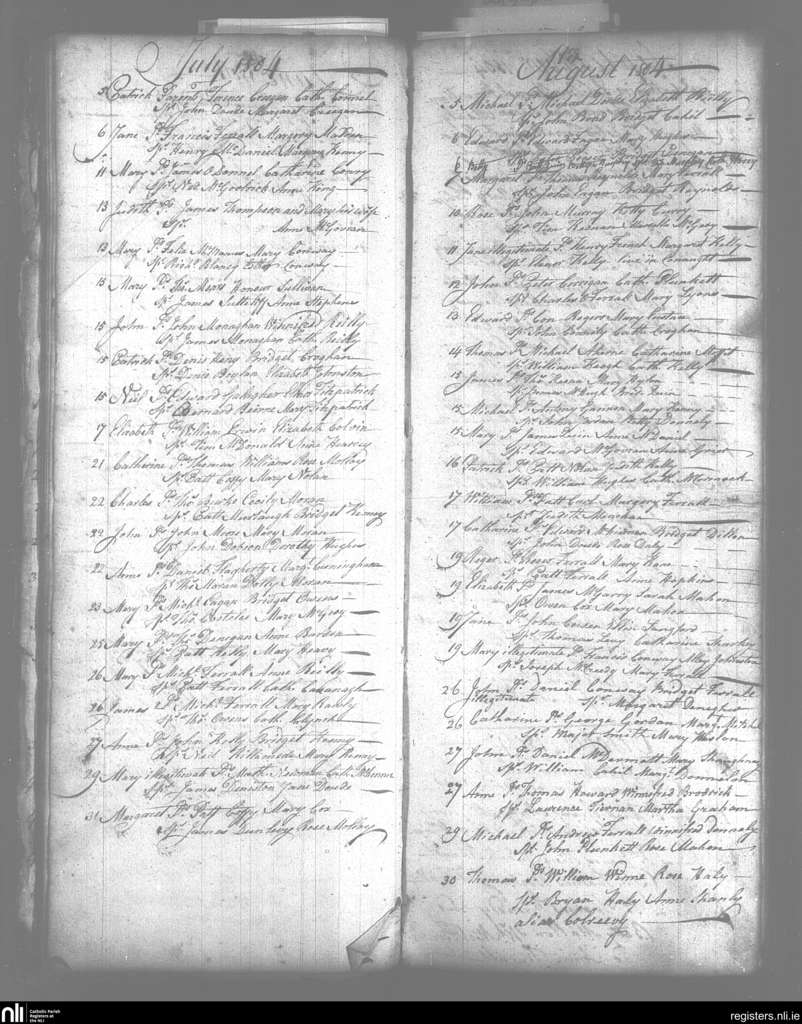 July 1804
5 Patrick Parents Terence Cregan Cath. Connel
Sps. John Dowde Margaret Creegan
6 Jane Ps. Francis Farrall Margery
Sps. Henry McDaniel Margery Kenny
11 Mary Ps. James O Donnel Catharine Conry
Sps. Neil McGoldrick Anne King
13 Judith Ps. James Thompson and Mary his wife
Sps. Anne McGovern
13 Mary Ps. Felix McManus Mary Conway
Sps. Richd. Blaney Conway
15 Mary Ps. Thos. Mears Honour Sullivan
Sps. James Sutliff Anne Stephens
15 John Ps. John Monaghan Winnifred Reilly
Sps. James Monaghan Cath. Reilly
15 Patrick Ps. Denis Keny Bridget Croghan
Sps. Denis Boylan Elizabeth Johnston
15 Neil Ps. Edward Gallagher Elinor Fitzpatrick
Sps. Bernard Mary Fitzpatrick
17 Elizabeth Ps. William Irwin Elizabeth Colvin
Sps. Tim McDonald Jane Hearey
21 Catherine Ps. Thomas Williams Rose McKay
Sps. Patt Coffy Mary Nolan
22 Charles Ps. Thos. Burke Cecily Moran
Sps. Patt Murtaugh Bridget Kenney
22 John Ps. John Moore Mary Moran
Sps. John Dobson Dorothy Hughes
22 Anne Ps. Daniel Flagherty Margt. Cunningham
Sps. Thos. Moran Molly Moran
23 Mary Ps. Michl. Eagan Bridget Owens
Sps. Thos. Costoloe Mary McGrey
25 Mary Ps. Denegan Anne Borden
Sps. Patt Kelly Mary Heavy
26 Mary Ps. Michl. Farrall Anne Reilly
Sps. Patt Farrall Cath. Cavanagh
26 James Ps. Michl. Farrall Mary Rabby
Sps. Thos. Owens Cath. Clynch
27 Anne Ps. John Kelly Bridget Keeny
Sps. Neil Mary Kenny
29 Mary illegitimate Ps. Math. Noonan Cath. McManus
Sps. James Deniston Jane Dowde
31 Margaret Ps. Patt Coffy Mary Cox
Sps. James Dunleavy Rose McKay
August 1804
5 Michael Ps. Michael Dowde Elizabeth Reilly
Sps. John Bond Bridget Cahil
6 Edward Ps. Edward Fagan Mary Hughes
Margaret Reynolds Mary Farrall
Sps. John Eagan Bridget Reynolds
10 Rose Ps. John Murray Kitty Curry
Sps. Tim Keenan Isabella McGrey
11 Jane illegitimate Ps. Henry French Margaret Kelly
Sps. Elenor Kelly live in Conaught
12 John Ps. Peter Corrigan Cath. Plunkett
Sps. Charles O Farrall Mary Lyons
13 Edward Ps. Con Rogers Mary Eustace
Sps. John Cath. Croghan
14 Thomas Ps. Michael Ahearne Catharine Moffet
Sps. William Keogh Cath. Kelly
15 James Ps. Thos. Mary
Sps. James McHugh Bridt. Quin
15 Michael Ps. Antony Gannon Mary Feeney
Sps. John Kitty Donnoly
15 Mary Ps. James Quin Anne McDaniel
Sps. Edward McGovern Anne Greer
16 Patrick Ps. Patt Nolan Judith Kelly
Sps. William Hughes Cath. McCormack
17 William Ps. Patt Cock Margery Farrall
Sps. Judith Meighan
17 Catharine Ps. Edward McKiernan Bridget Dillon
Sps. John Davis Rose Daly
19 Roger Ps. Farrall Mary Kane
Sps. Patt Farrall Anne Hopkins
19 Elizabeth Ps. James McGarry Sarah Mahon
Sps. Owen Cox Mary Mahon
19 Jane Ps. John Corcoran Langford
Sps. Thomas Levy Catharine Sharkey
19 Mary illegitimate Ps. Francis Conway Alley Johnston
Sps. Joseph McCredy Mary Farrall
26 John Ps. Daniel Conway Bridget Farrall
illegitimate Sps. Margaret Donegher
26 Catharine Ps. George Gordon Mary McCabe
Sps. Major Smith Mary Harlan
27 John Ps. Daniel McDermott Mary Shaughnessy
Sps. William Cahil Margt. Donnellan
27 Anne Ps. Thomas Howard Winnifred Brodrick
Sps. Laurence Tiernan Martha Graham
29 Michael Ps. Andrew Farrall Winnifred Donnoly
Sps. John Plunkett Rose Mahon
30 Thomas Ps. William Winne Rose Haly
Sps. Bryan Haly Anne Shanly
alias Colreevy
nli
Catholic Parish
Registers at
the NLI
registers.nli.ie